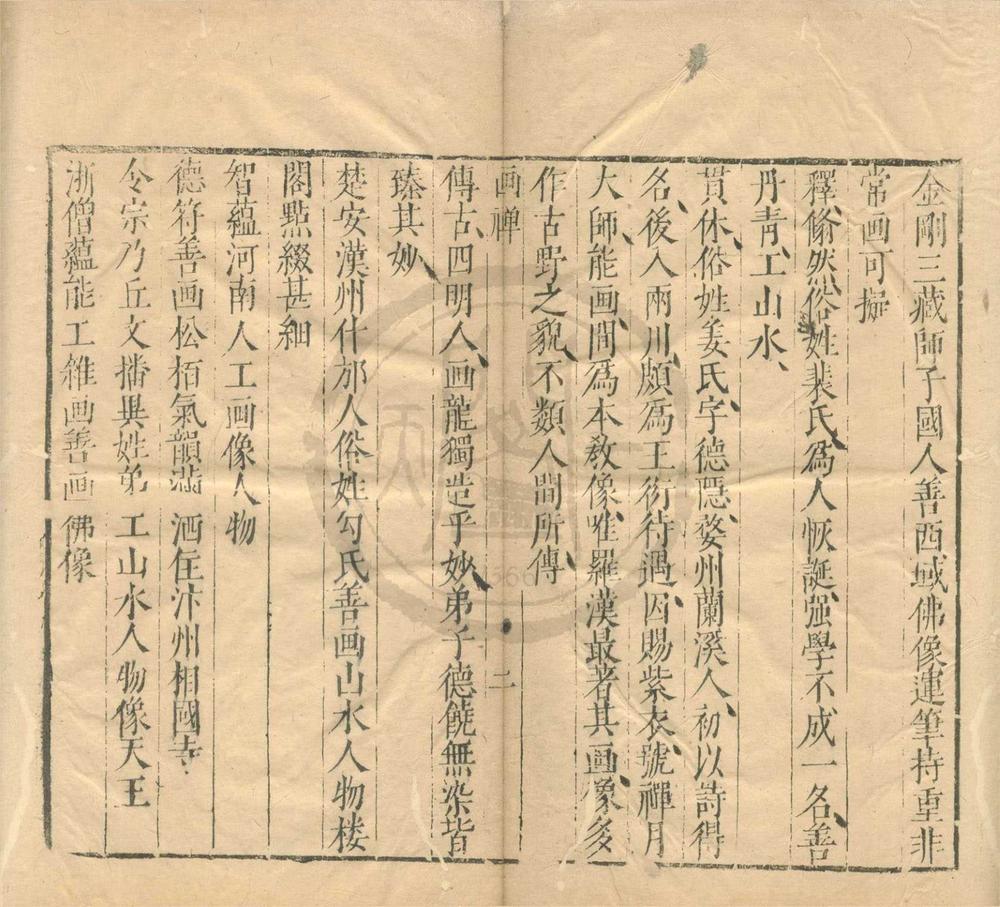 金剛三藏師子國人善西域佛像運筆持重非
常画可擬
釋翛然俗姓裴氏爲人恢誕强學不成一名善
丹青工山水
貫休俗姓姜氏字德隱婺州蘭溪人初以詩得
名後入兩川頗爲王衍待遇因賜紫衣號禪月
大師能画間爲本教像唯羅漢最著其画像多
作古野之貌不類人間所傳
画禪 二
傳古四明人画龍獨造乎妙弟子德饒無染皆
臻其妙
楚安漢州什邡人俗姓勾氏善画山水人物楼
閣點綴甚細
智蘊河南人工画像人物
德符善画松栢氣韻滿洒住汴州相國寺
令宗乃丘文播異姓弟工山水人物像天王
浙僧蘊能工雜画善画佛像